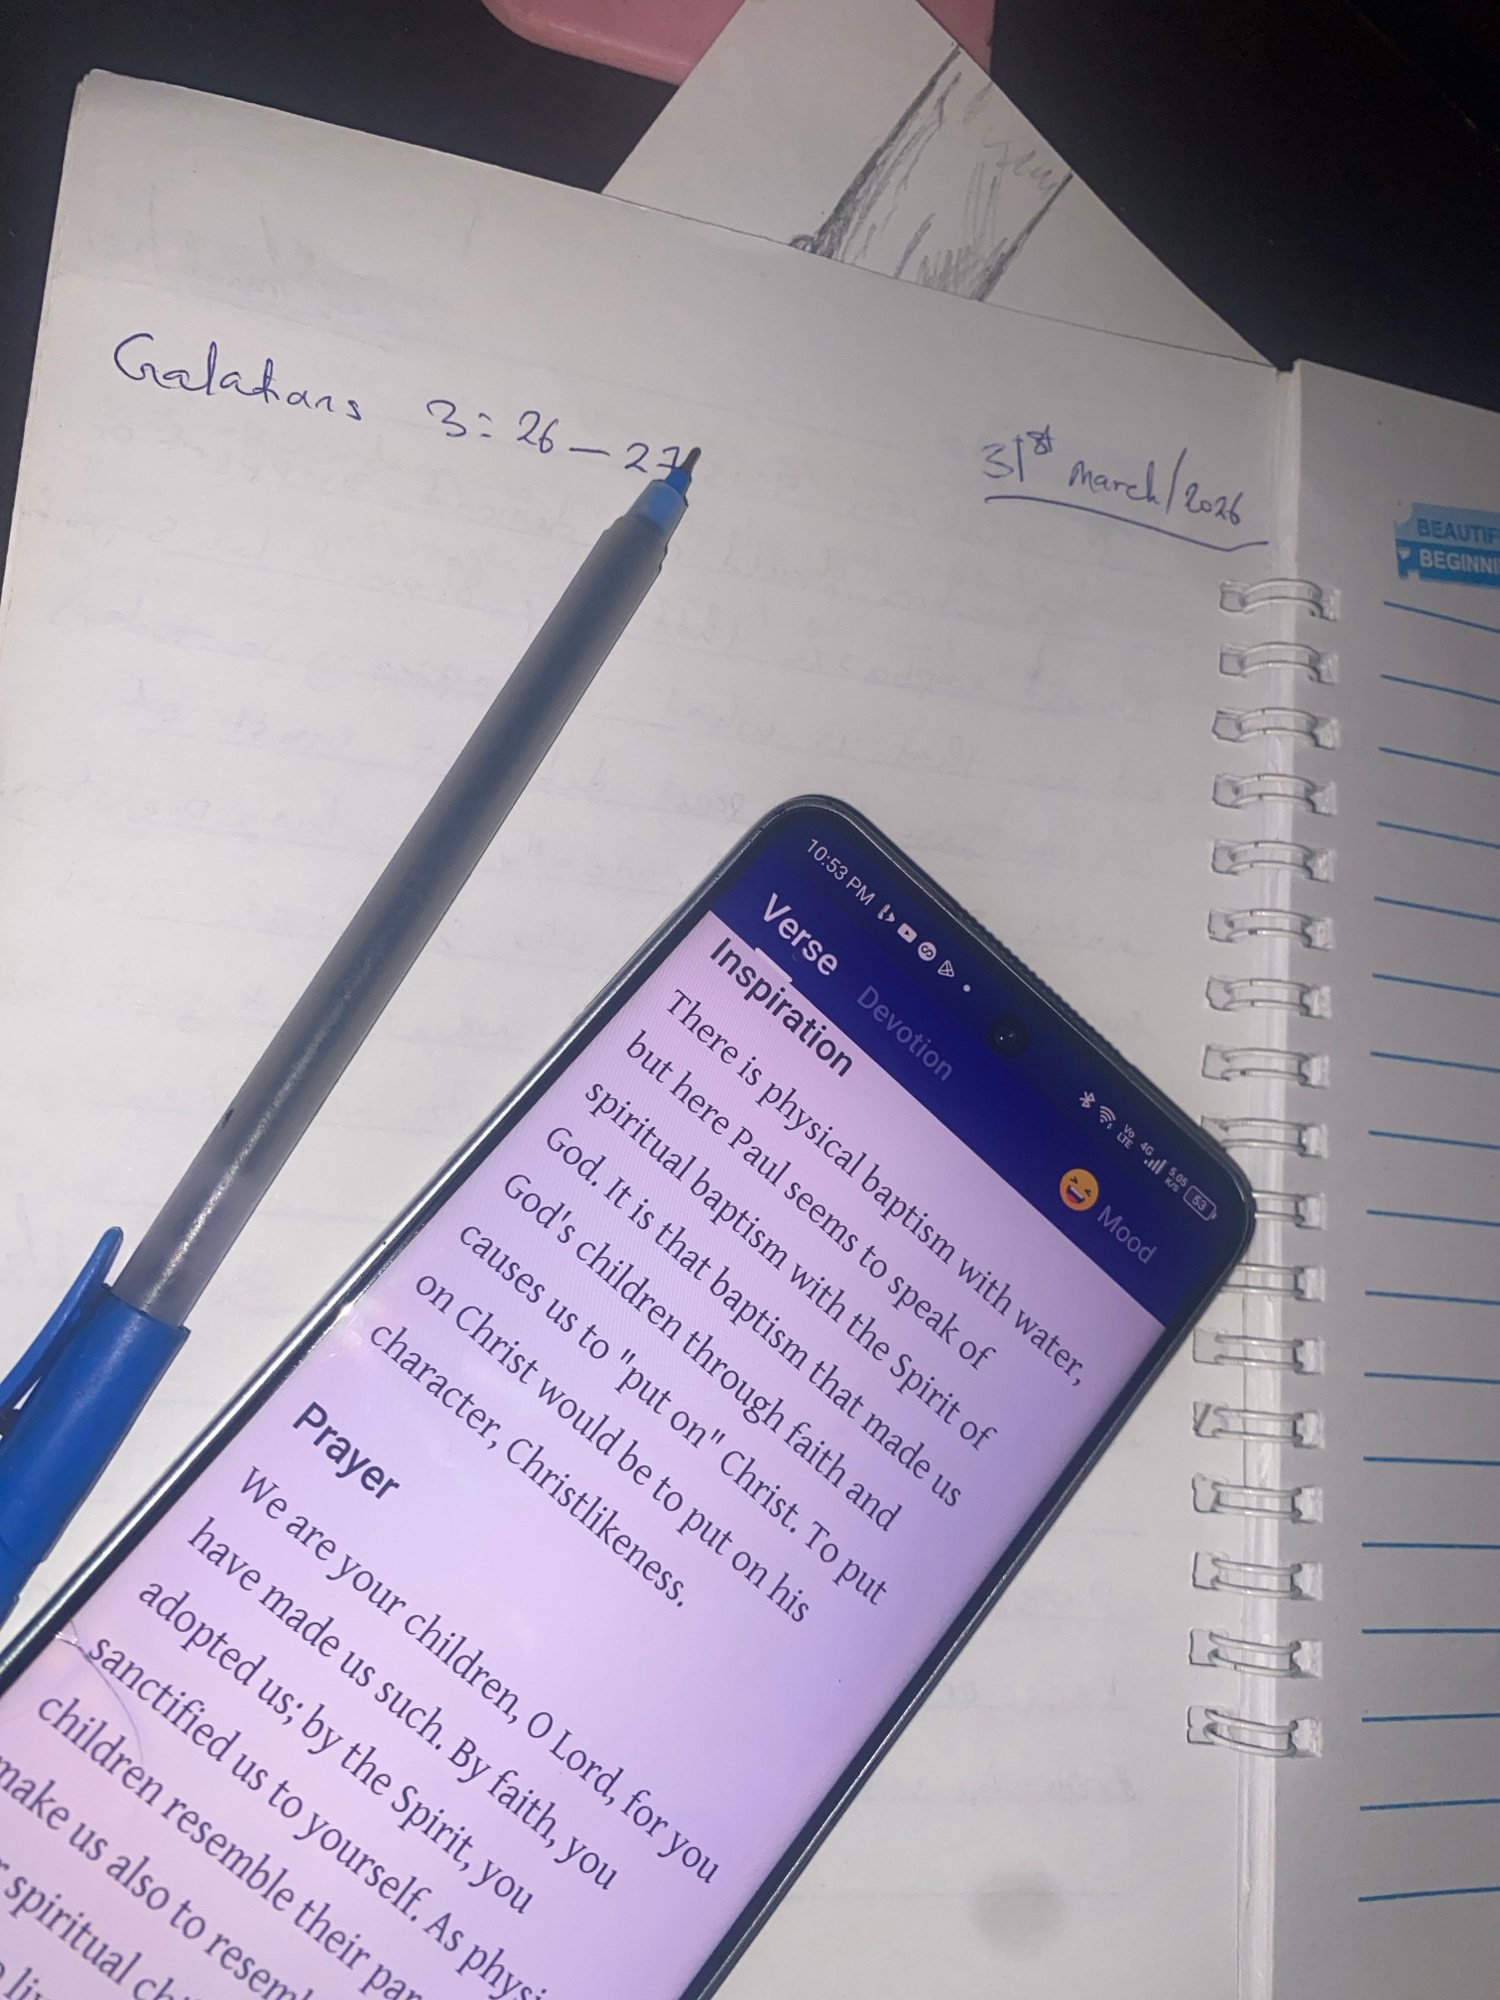 Galatians 3:26-27
31st March/2026
BEAUTIF
BEGINNI
10:53 PM
Vo LTE 4G 5.05 K/S 53
Verse Devotion Mood
Inspiration
There is physical baptism with water,
but here Paul seems to speak of
spiritual baptism with the Spirit of
God. It is that baptism that made us
God's children through faith and
causes us to "put on" Christ. To put
on Christ would be to put on his
character, Christlikeness.
Prayer
We are your children, O Lord, for you
have made us such. By faith, you
adopted us; by the Spirit, you
sanctified us to yourself. As physi
children resemble their par
make us also to resembl
spiritual ch